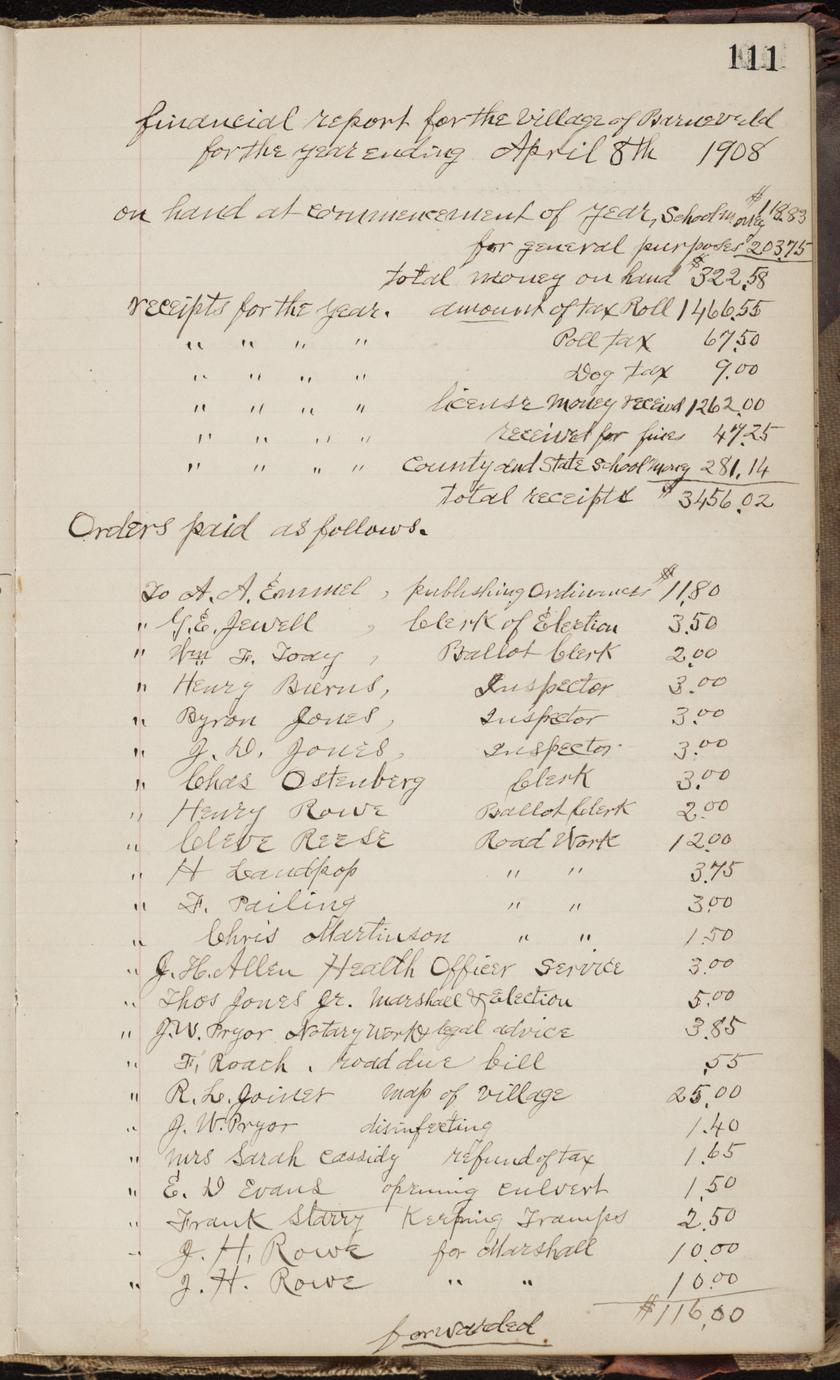 111
financial report for the village of Barneveld
for the year ending April 8th 1908
on hand at commencement of year, School money $118.83
for general purposes $203.75
total money on hand $322.58
receipts for the year. amount of tax Roll 1466.55
" " " " Poll tax 67.50
" " " " Dog tax 9.00
" " " " license money receivd 1262.00
" " " " receivet for fines 47.25
" " " " county and State School money 281.14
total receipts $3456.02
Orders paid as follows.
To A. A. Emmel, publishing Ordinances $11.80
" G. E. Jewell, Clerk of Election 3.50
" Wm F. Toay, Ballot Clerk 2.00
" Henry Buerns, Inspector 3.00
" Byron Jones, Inspector 3.00
" J. D. Jones, Inspector 3.00
" Chas Ostenberg Clerk 3.00
" Henry Rowe Ballot Clerk 2.00
" Cleve Reese Road Work 12.00
" H Landpop " " 3.75
" F. Pailing " " 3.00
" Chris Martinson " " 1.50
" J. H. Allen Health Officer Service 3.00
" Thos Jones Jr. Marshall & Election 5.00
" J. W. Pryor Notary work & legal advice 3.85
" F. Roach. road due bill .55
" R. L. Joiner map of village 25.00
" J. W. Pryor disinfecting 1.40
" Mrs Sarah Cassidy refund of tax 1.65
" E. D Evans opening culvert 1.50
" Frank Starry Keeping Tramps 2.50
" J. H. Rowe for Marshall 10.00
" J. H. Rowe " " 10.00
$116.00
forwarded.